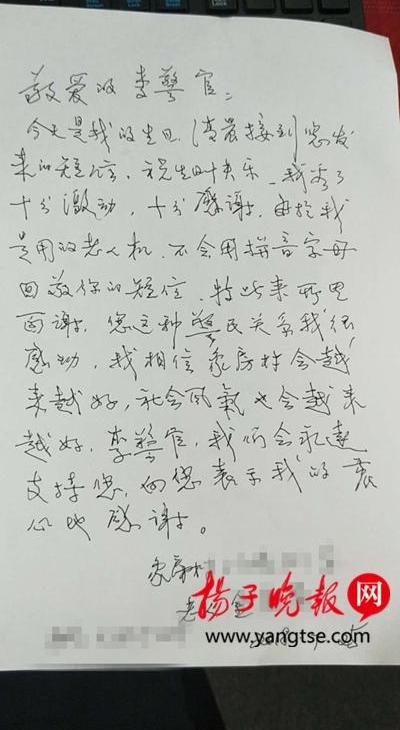 敬爱的李警官：
今天是我的生日，清晨接到您发
来的短信，祝生日快乐，我看了
十分激动，十分感谢，由於我
是用的老人机，不会用拼音字母
回敬你的短信，特此来所里
面谢，您这种警民关系我很
感动，我相信象房村会越
来越好，社会风氣也会越来
越好，李警官，我们会永远
支持您，向您表示我的衷
心地感谢。
象房村
老
扬子晚报网
www.yangtse.com